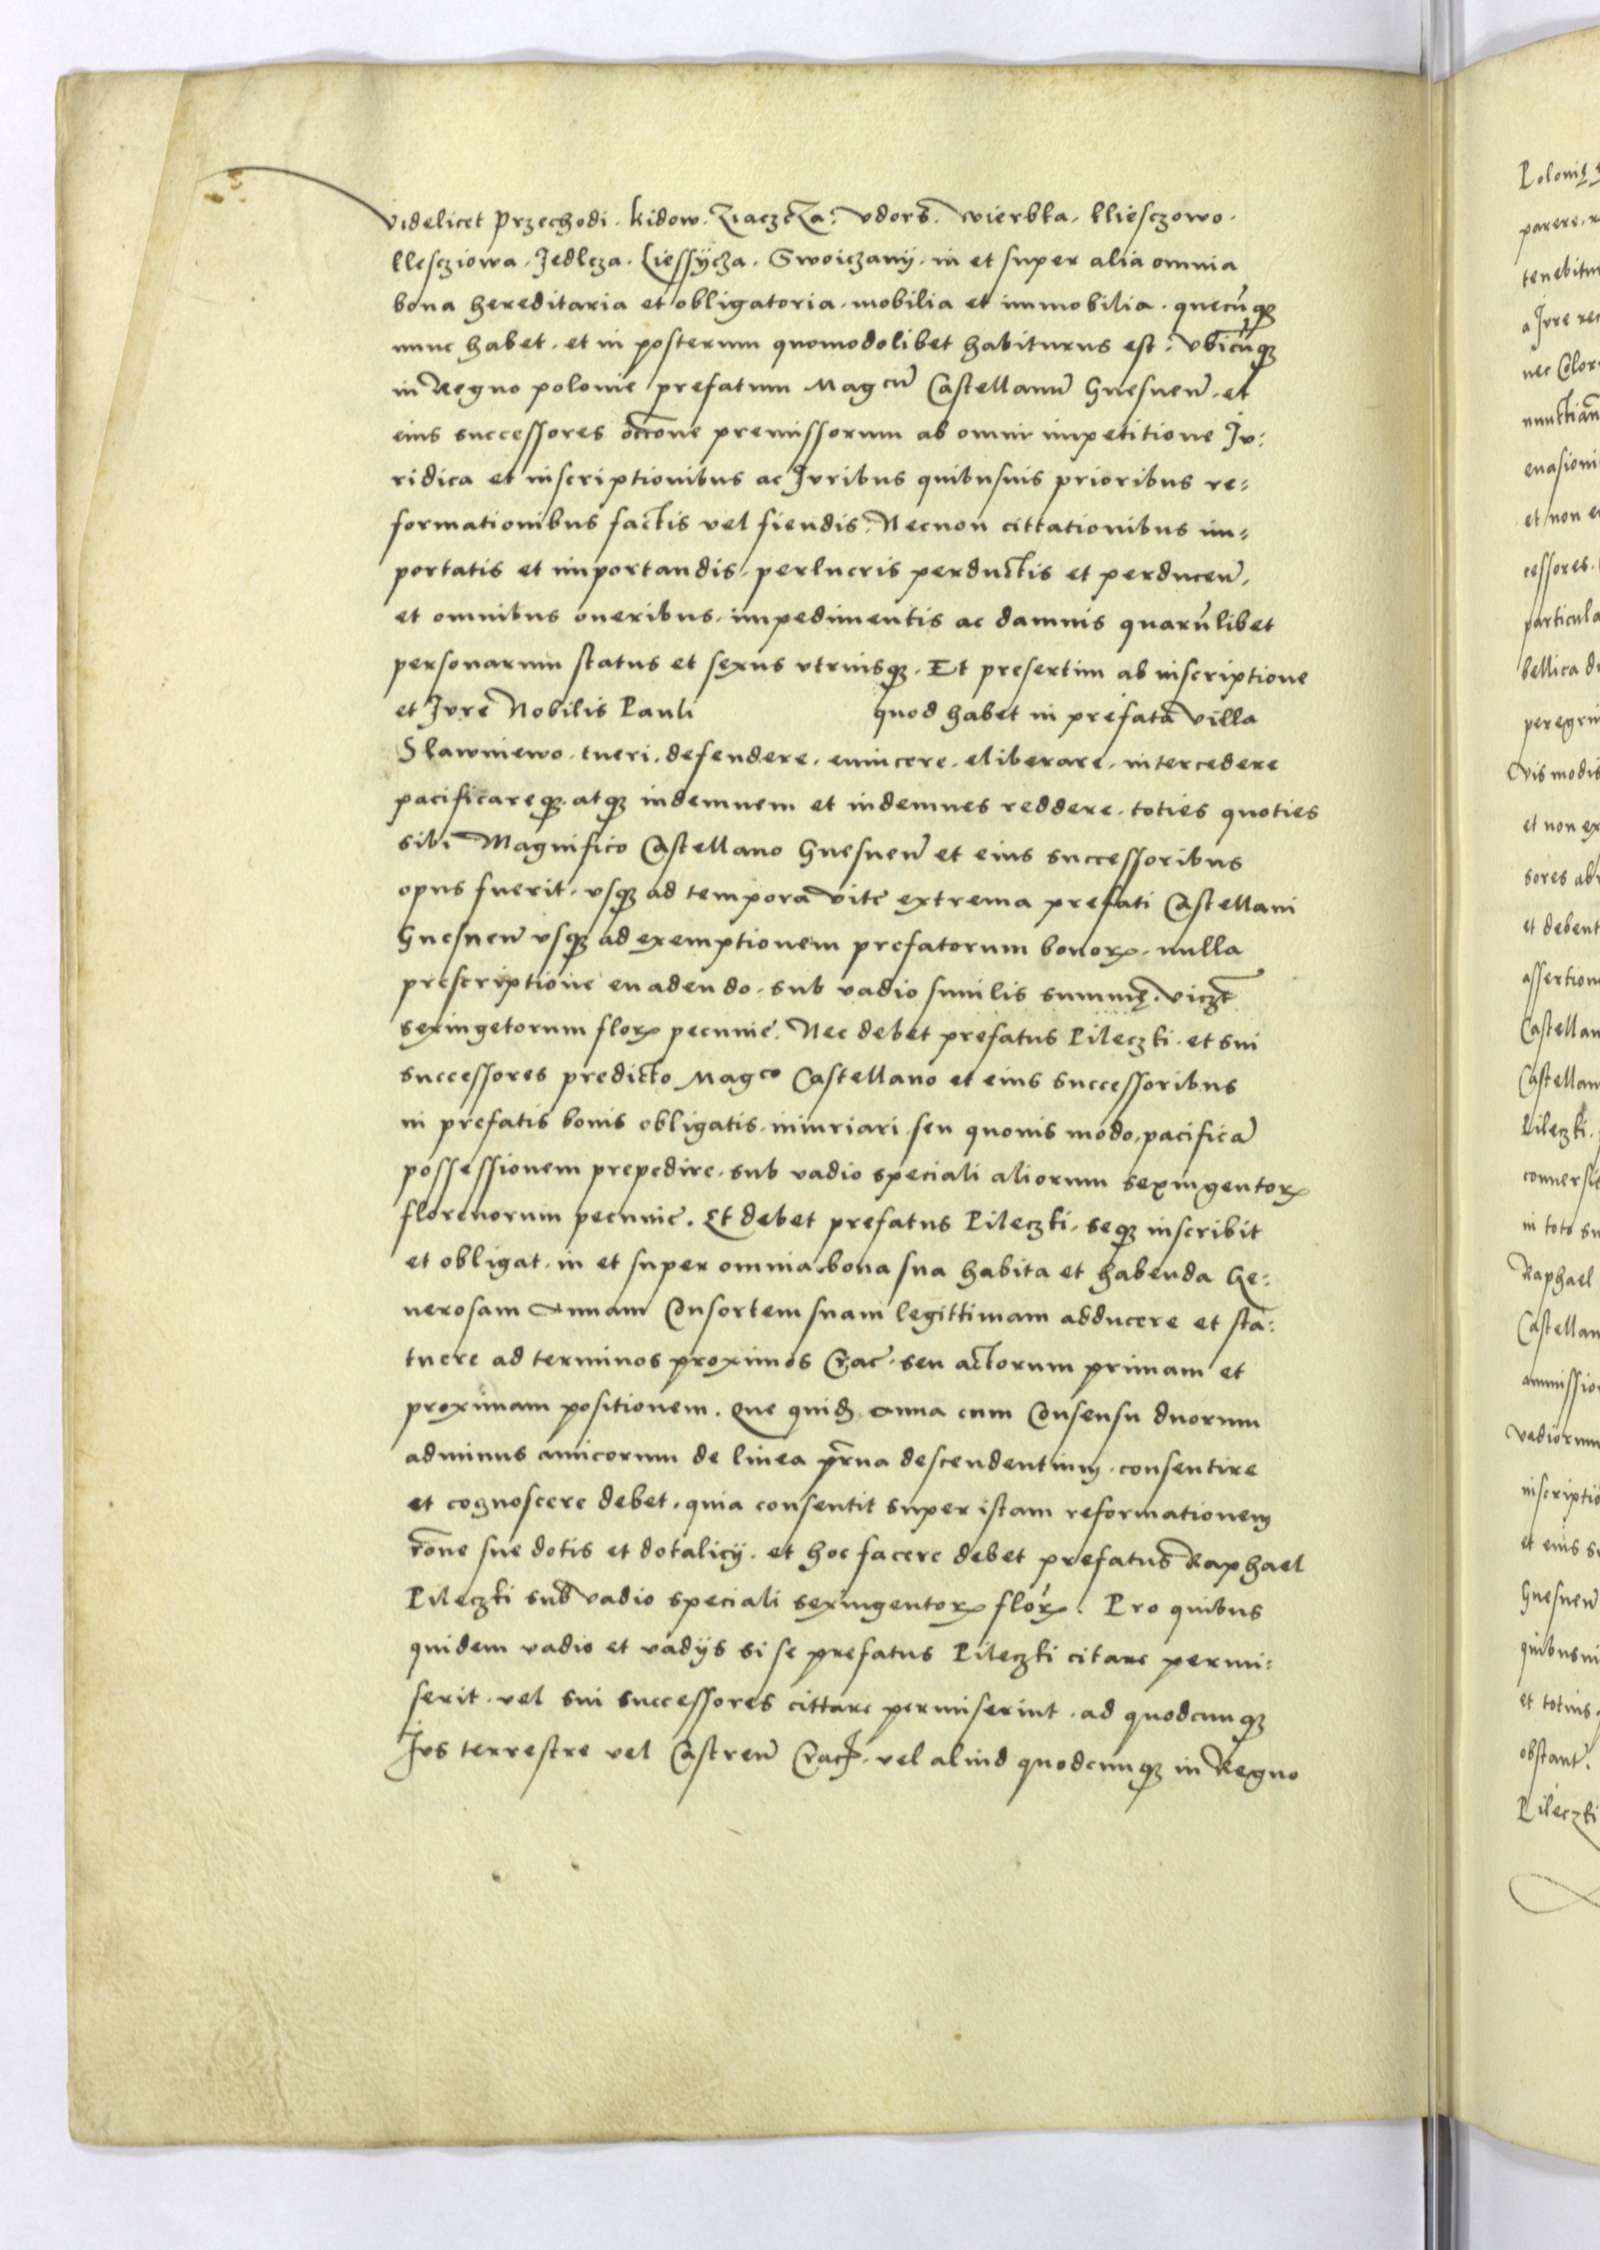 Videlicet Przechodi. Kidow. Ziaczcza: Vdorz. Wierbka. Kliesczowo.
Klescziowa. Jedlcza. Liessycza. Swoiczany. in et super alia omnia
bona hereditaria et obligatoria. mobilia et immobilia. quecũqꜣ
nunc habet. et in posterum quomodolibet habiturus est: vbicũqꜣ
in Regno polonie prefatum Magcũ Castellanũ Gnesneñ. et
eius successores occõne premissorum ab omni impetitione Iu:
ridica et inscriptionibus ac Iuribus quibusuis prioribus re:
formationibus factis vel fiendis. Necnon cittationibus im:
portatis et importandis. perlucris perductis et perduceñ.
et omnibus oneribus. impedimentis ac damnis quarũlibet
personarum status et sexus vtriusqꜣ. Et presertim ab inscriptione
et Iure Nobilis Pauli quod habet in prefata villa
Slawniewo. tueri. defendere. euincere. eliberare. intercedere
pacificareqꜣ. atqꜣ indemnem et indemnes reddere. toties quoties
sibi Magnifico Castellano Gnesneñ et eius successoribus
opus fuerit. vsqꜣ ad tempora vite extrema prefati Castellani
Gnesneñ vsqꜣ ad exemptionem prefatorum bonoꝝ. nulla
prescriptione euadendo. sub vadio similis summę. viczt
sexingetorum floꝝ pecunie. Nec debet prefatus Pileczki. et sui
successores predicto Magco Castellano et eius successoribus
in prefatis bonis obligatis. iniuriari. seu quouis modo. pacificã
possessionem prepedire. sub vadio speciali aliorum sexingentoꝝ
florenorum pecunie. Et debet prefatus Pileczki. seqꜣ inscribit
et obligat. in et super omnia bona sua habita et habenda Ge:
nerosam Annam Consortem suam legittimam adducere et sta:
tuere ad terminos proximos Crac̃. seu actorum primam et
proximam positionem. Que quid̃. Anna cum Consensu duorum
adminus amicorum de linea pr̃na descendentium. consentire
et cognoscere debet. quia consentit super istam reformationem
rõne sue dotis et dotalicy. et hoc facere debet prefatus Raphael
Pileczki sub vadio speciali sexingentoꝝ floꝝ. Pro quibus
quidem vadio et vadys si se prefatus Pileczki citare permi:
serit. vel sui successores cittare permiserint. ad quodcunqꜣ
Ius terrestre vel Castreñ Crac̃. vel aliud quodcunqꜣ in Regno